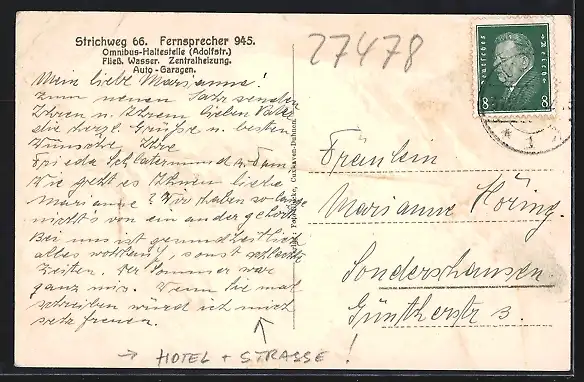 Strichweg 66. Fernsprecher 945.
Omnibus-Haltestelle (Adolfstr.)
Fließ. Wasser. Zentralheizung.
Auto-Garagen.
Mein liebe Marianne!
Zum neuen Jahr senden
Ihnen u. Ihrem lieben Vater
die herzl. Grüsse u. besten
Wünsche Ihre
Frieda Schlatermund u. Fam.
Wie geht es Ihnen liebe
Marianne? Wir haben so lange
nichts von ein ander gehört.
Bei uns ist gesundheitlich
alles wohlauf, sonst schlechte
Zeiten. Der Sommer war
ganz mis. Wenn Sie mal
schreiben würde ich mich
sehr freuen.
→ HOTEL + STRASSE !
Cuxhaven-Duhnen
27478
Deutsches Reich
8 8
Fräulein
Marianne Höring.
Sondershausen.
Güntherstr 3.